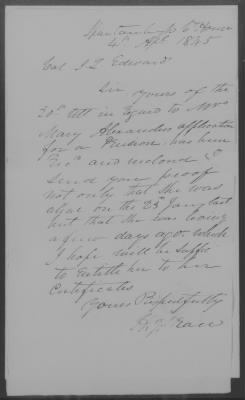 Spartanburg C. House
4th Apl. 1845
Col J L Edwards
Sir yours of the
20th ult in regard to Mrs
Mary Alexanders application
for a Pension was here
Recd and inclosed I
send you proof
not only that she was
alive on the 23d Jany last
but that she was living
a few days ago which
I hope will be suffic
to entitle her to her
Certificates
Yours Respectfully